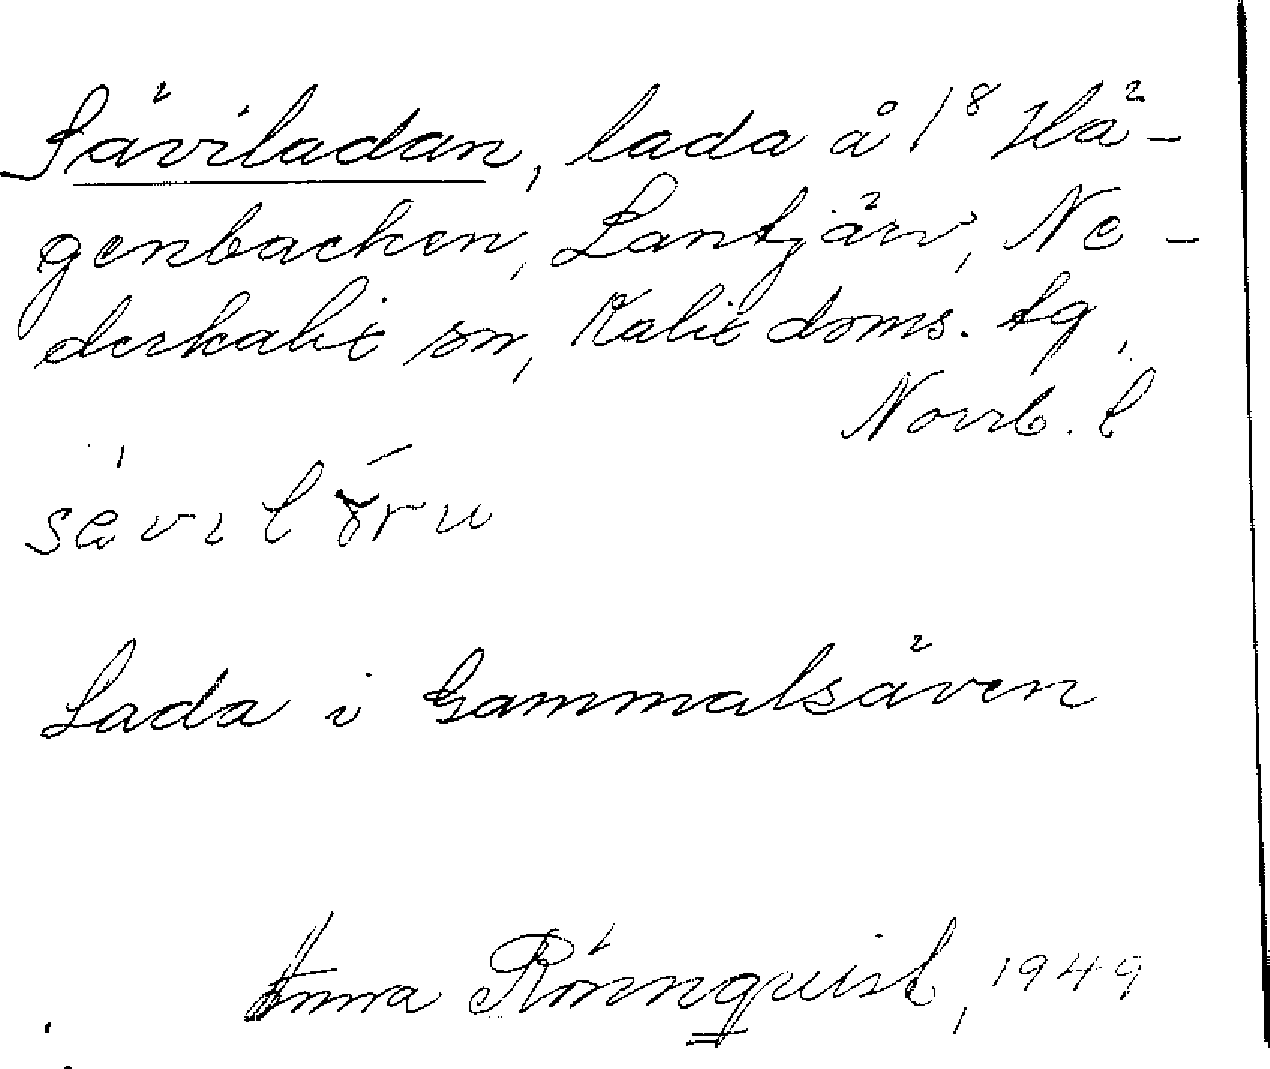 Säviladan, lada å 1⁸ Hä-
genbacken, Lantjärv, Ne-
derkalix sn, Kalix doms. tg,
Norrb. l
Lada i Gammalsäven
Anna Rönnquist, 1949